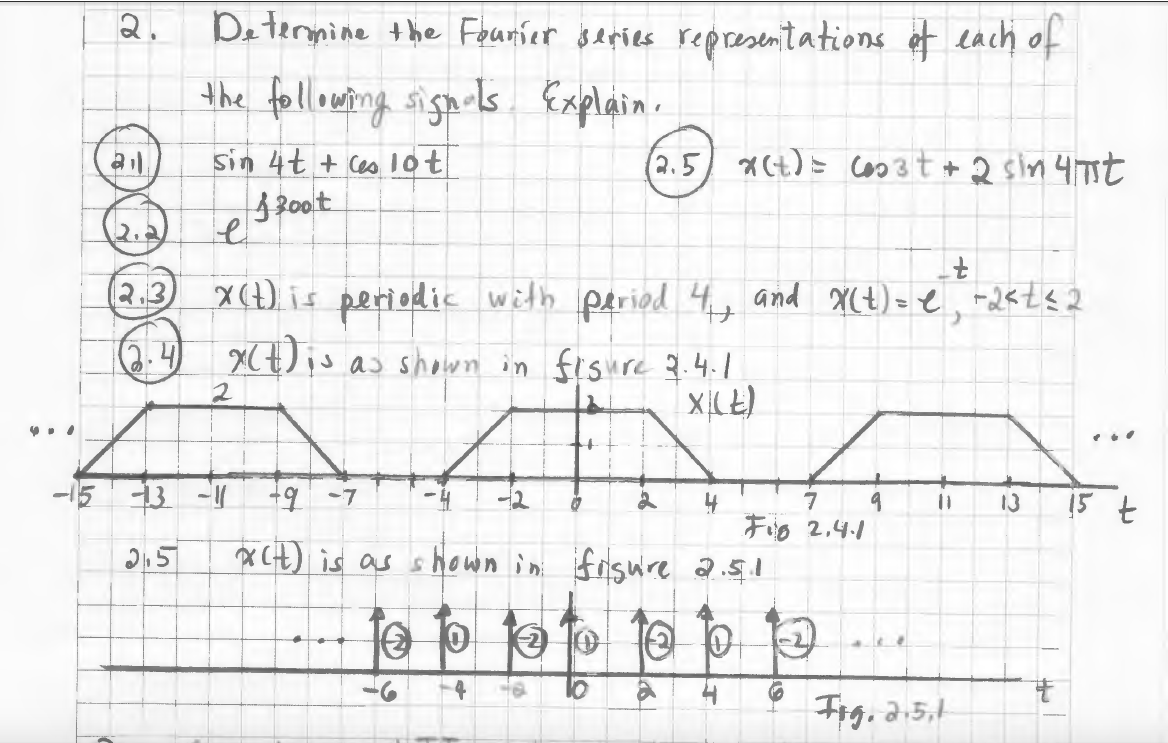 2. Determine the Fourier series representations of each of
the following signals. Explain.
2.1 sin 4t + cos 10t
2.5 x(t) = cos 3t + 2 sin 4πt
2.2 e^{j300t}
2.3 x(t) is periodic with period 4, and x(t) = e^{-t}, -2<t≤2
2.4 x(t) is as shown in figure 2.4.1
2 2 x(t)
... 1 ...
-15 -13 -11 -9 -7 -4 -2 0 2 4 7 9 11 13 15 t
Fig 2.4.1
2.5 x(t) is as shown in figure 2.5.1
... -2 1 -2 1 -2 1 -2 ...
-6 -4 -2 0 2 4 6 t
Fig. 2.5.1